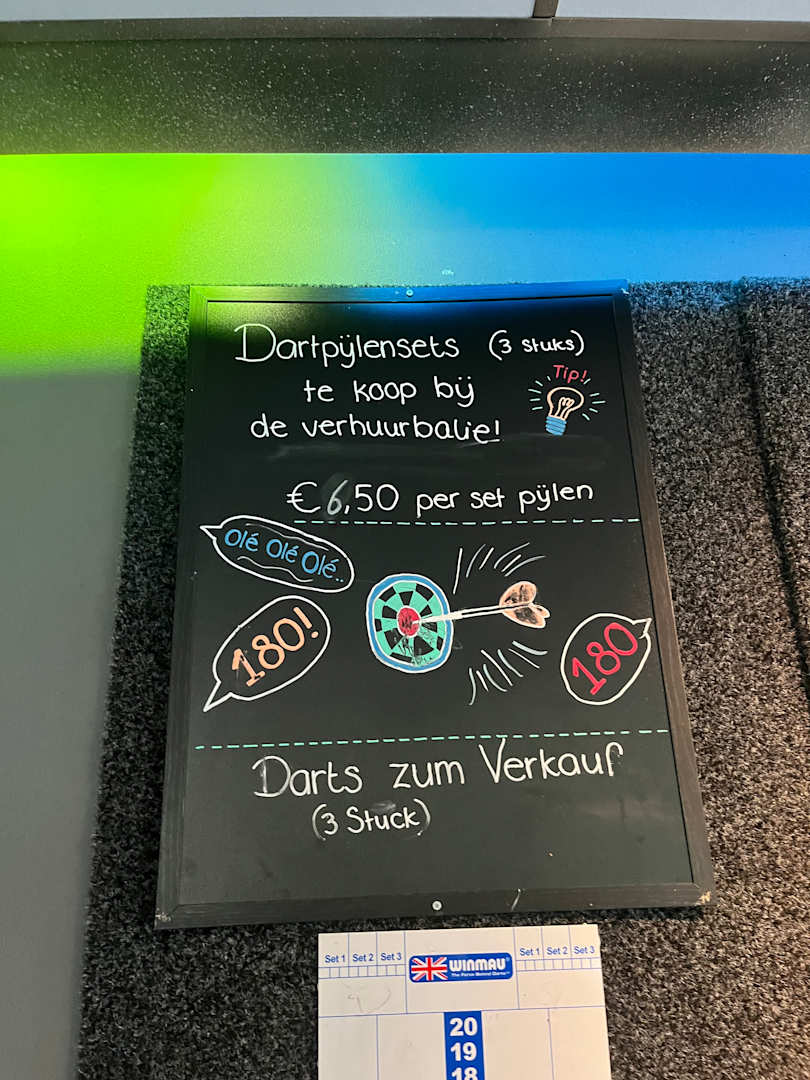 Dartpijlensets (3 stuks)
te koop bij
de verhuurbalie!
Tip!
€6,50 per set pijlen
Olé Olé Olé..
180!
180
Darts zum Verkauf
(3 Stuck)
Set 1 Set 2 Set 3
WINMAU
The Force Behind Darts
Set 1 Set 2 Set 3
20
19
18